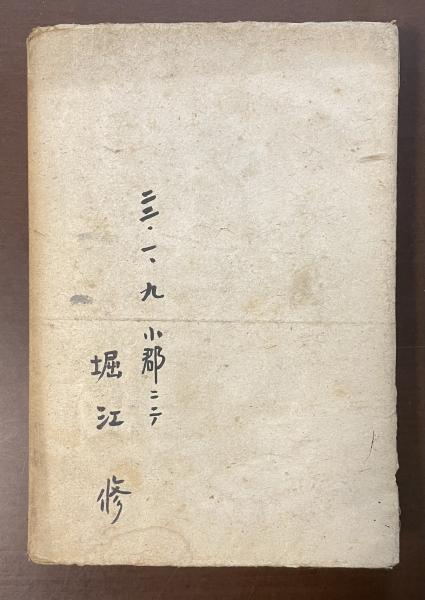 二三・一、九 小郡ニテ
堀江 修